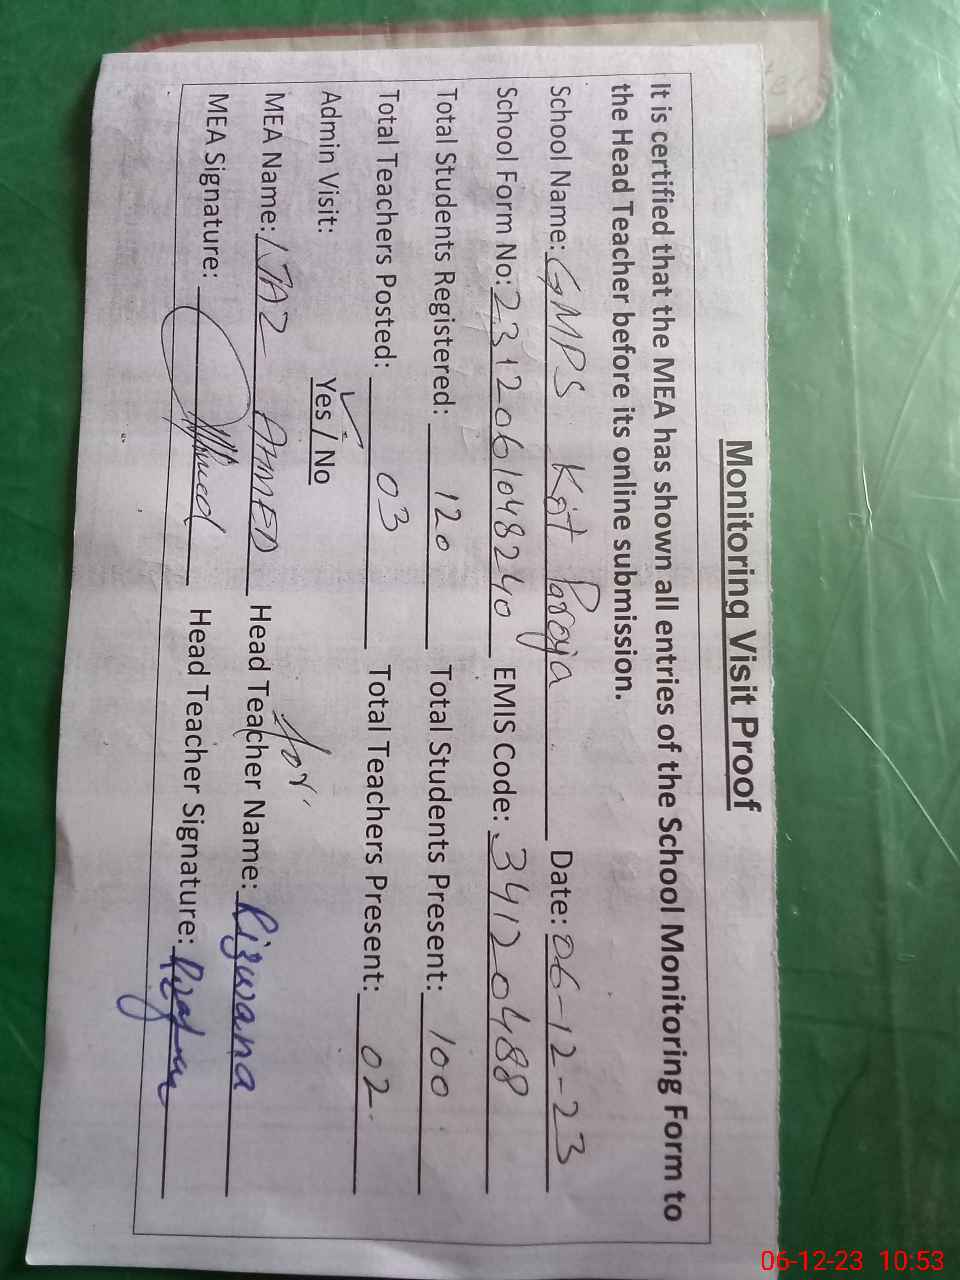 Monitoring Visit Proof
It is certified that the MEA has shown all entries of the School Monitoring Form to
the Head Teacher before its online submission.
School Name: GMPS Kot Paroya Date: 06-12-23
School Form No: 2312061048240 EMIS Code: 34120488
Total Students Registered: 120 Total Students Present: 100
Total Teachers Posted: 03 Total Teachers Present: 02
Admin Visit: Yes / No
for
MEA Name: IJAZ AHMED Head Teacher Name: Rizwana
MEA Signature: Ahmed Head Teacher Signature:
06-12-23 10:53